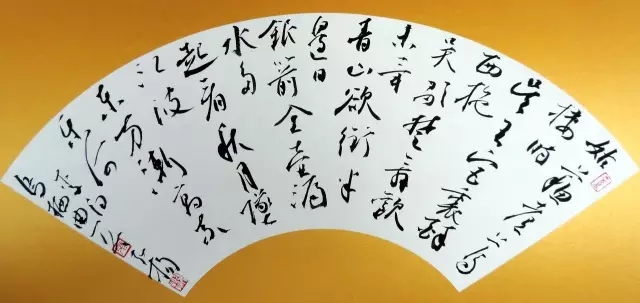 姑蘇臺上烏
棲時
吳王宮裏醉
西施
吳歌楚舞歡
未畢
青山欲銜半
邊日
銀箭金壺漏
水多
起看秋月墜
江波
東方漸高奈
樂何
李白
烏棲曲